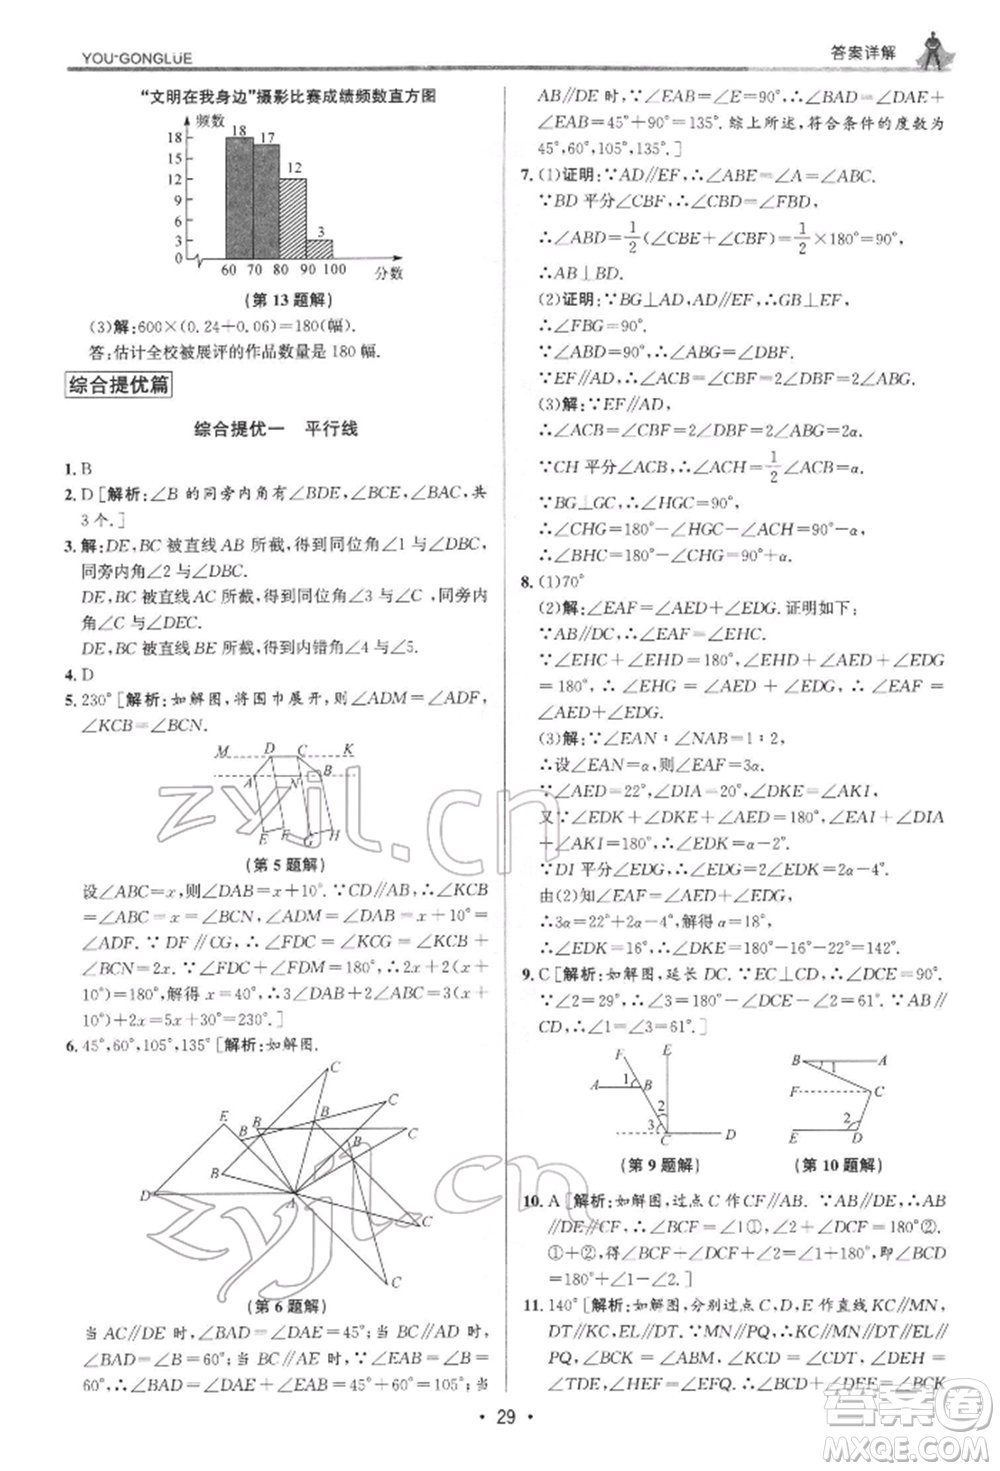 YOU+GONGLÜE
答案详解
“文明在我身边”摄影比赛成绩频数直方图
频数
18
15
12
10
8
6
5
3
0
18
17
12
3
60 70 80 90 100
分数
(第 13 题解)
(3)解:600×(0.24+0.06)=180(幅).
答:估计全校被展评的作品数量是 180 幅.
综合提优篇
综合提优一 平行线
1. B
2. D [解析:∠B 的同旁内角有∠BDE,∠BCE,∠BAC,共
3 个.]
3. 解:DE,BC 被直线 AB 所截,得到同位角∠1 与∠DBC,
同旁内角∠2 与∠DBC.
DE,BC 被直线 AC 所截,得到同位角∠3 与∠C,同旁内
角∠C 与∠DEC.
DE,BC 被直线 BE 所截,得到内错角∠4 与∠5.
4. D
5. 230° [解析:如解图,将围巾展开,则∠ADM=∠ADF,
∠KCB=∠BCN.
M D C K
A N B
E F G H
(第 5 题解)
设∠ABC=x,则∠DAB=x+10°.∵CD∥AB,∴∠KCB=
∠ABC=x=∠BCN,∠ADM=∠DAB=x+10°=
∠ADF.∵DF∥CG,∴∠FDC=∠KCG=∠KCB+
∠BCN=2x.∵∠FDC+∠FDM=180°,∴2x+2(x+
10°)=180°,解得 x=40°,∴3∠DAB+2∠ABC=3(x+
10°)+2x=5x+30°=230°.]
6. 45°,60°,105°,135° [解析:如解图.
C
C
E B B
B B C
D A
C
C
(第 6 题解)
当 AC∥DE 时,∠BAD=∠DAE=45°;当 BC∥AD
时,∠BAD=∠B=60°;当 BC∥AE 时,∵∠EAB=∠B=
60°,∴∠BAD=∠DAE+∠EAB=45°+60°=105°;当
AB∥DE 时,∵∠EAB=∠E=90°,∴∠BAD=∠DAE+
∠EAB=45°+90°=135°.综上所述,符合条件的度数为
45°,60°,105°,135°.]
7. (1)证明:∵AD∥EF,∴∠ABE=∠A=∠ABC.
∵BD 平分∠CBF,∴∠CBD=∠FBD,
∴∠ABD=1/2(∠CBE+∠CBF)=1/2×180°=90°,
∴AB⊥BD.
(2)证明:∵BG⊥AD,AD∥EF,∴GB⊥EF,
∴∠FBG=90°.
∵∠ABD=90°,∴∠ABG=∠DBF.
∵EF∥AD,∴∠ACB=∠CBF=2∠DBF=2∠ABG.
(3)解:∵EF∥AD,
∴∠ACB=∠CBF=2∠DBF=2α.
∵CH 平分∠ACB,∴∠ACH=1/2∠ACB=α.
∵BG⊥GC,∴∠HGC=90°,
∴∠CHG=180°-∠HGC-∠ACH=90°-α,
∴∠BHC=180°-∠CHG=90°+α.
8. (1)70°
(2)解:∠EAF=∠AED+∠EDG.证明如下:
∵AB∥DC,∴∠EAF=∠EHC.
∵∠EHC+∠EHG=180°,∠EHG+∠AED+∠EDG
=180°,∴∠EHG=∠AED+∠EDG,∴∠EAF=
∠AED+∠EDG.
(3)解:∵∠EAN:∠NAB=1:2,
∴设∠EAN=α,则∠EAF=3α.
∵∠AED=22°,∠DIA=20°,∠DKE=∠AKI,
又∵∠EDK+∠DKE+∠AED=180°,∠EAI+∠DIA
+∠AKI=180°,∴∠EDK=α-2°.
∵DI 平分∠EDG,∴∠EDG=2∠EDK=2α-4°.
由(2)知∠EAF=∠AED+∠EDG,
∴3α=22°+2α-4°,解得 α=18°,
∴∠EDK=16°,∴∠DKE=180°-16°-22°=142°.
9. C [解析:如解图,延长 DC.∵EC⊥CD,∴∠DCE=90°.
∵∠2=29°,∴∠3=180°-∠DCE-∠2=61°.∵AB∥
CD,∴∠1=∠3=61°.]
F E
A 1 B
2
3
C D
(第 9 题解)
B A
1
F C
2
E D
(第 10 题解)
10. A [解析:如解图,过点 C 作 CF∥AB.∵AB∥DE,∴AB
∥DE∥CF,∴∠BCF=∠1①,∠2+∠DCF=180°②.
①+②得,∠BCF+∠DCF+∠2=∠1+180°,即∠BCD
=180°+∠1-∠2.]
11. 140° [解析:如解图,分别过点 C,D,E 作直线 KC∥MN,
DT∥KC,EL∥DT.∵MN∥PQ,∴KC∥MN∥DT∥EL
∥PQ,∴∠BCK=∠ABM,∠KCD=∠CDT,∠DEH=
∠TDE,∠HEF=∠EFQ,∴∠BCK+∠HEF=∠ABM
29
zyjl.cn
zyjl.cn
答案圈
MXQE.COM